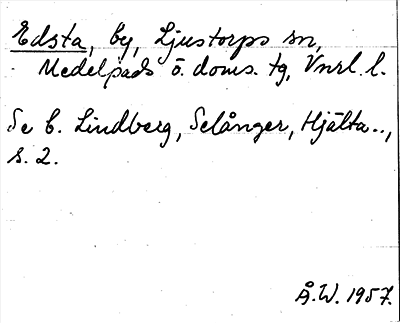 Edsta, by, Ljustorps sn,
Medelpads ö. doms. tg, Vnrl. l.
Se C. Lindberg, Selånger, Hjälta..,
s. 2.
Å.W. 1957.